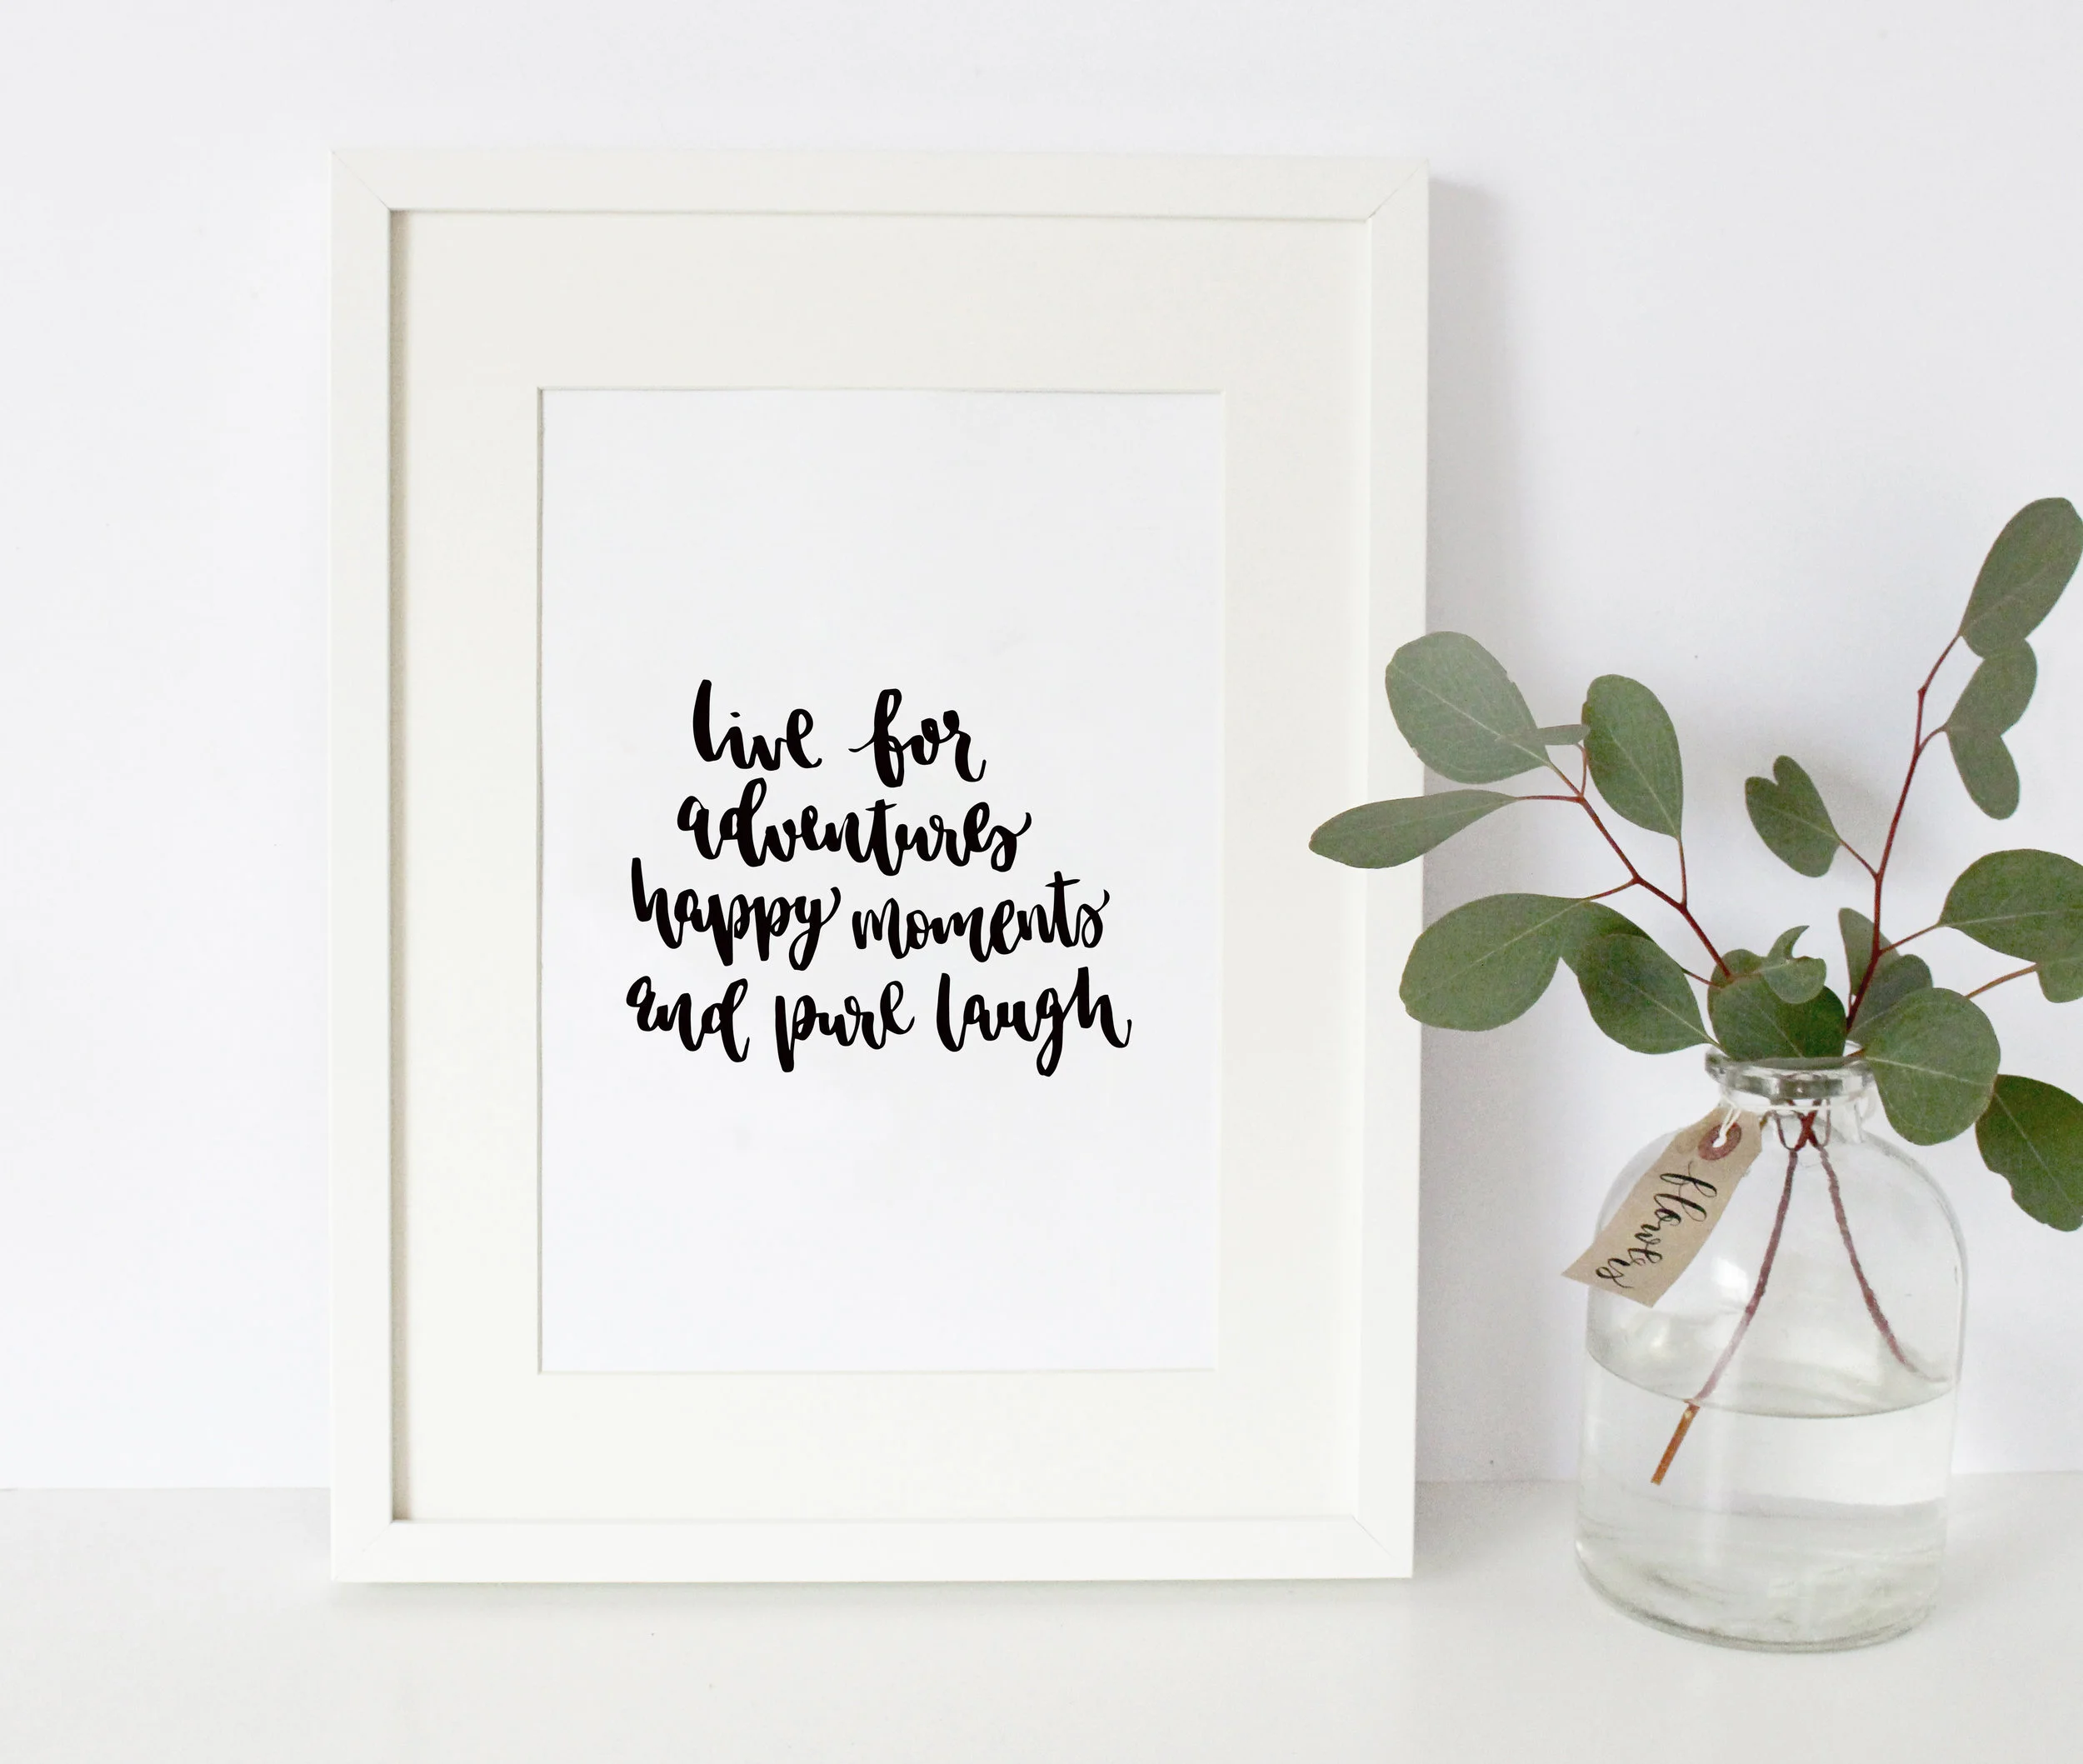 live for
adventures
happy moments
and pure laugh
flowers